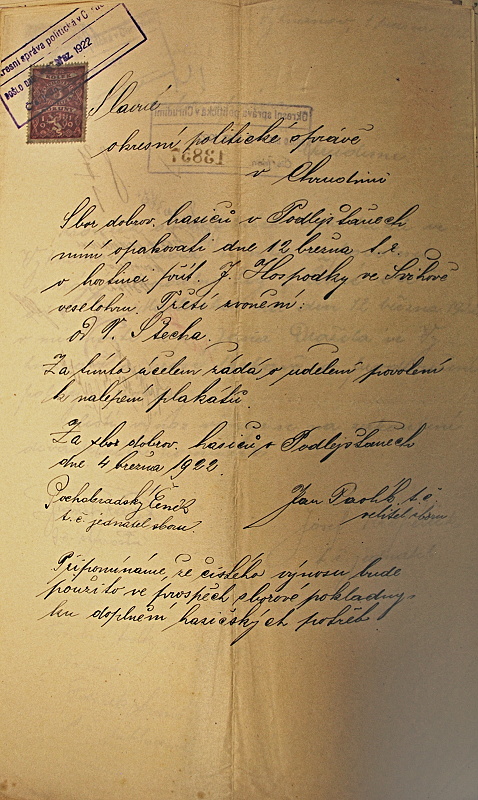 Okresní správa politická v C
DOŠLO DNE
břez. 1922
Slavné
okresní politické správě
v Chrudimi
Okresní správa politická v Chrudimi
13897
Sbor dobrov. hasičů v Podlejšťanech
míní opakovati dne 12 března t.r.
v hostinci přít. J. Hospodky ve Svikově
veselohru. Třetí zvonění:
od V. Štecha.
Za tímto účelem žádá o udělení povolení
k nalepení plakátů.
Za sbor dobrov. hasičů v Podlejšťanech
dne 4 března 1922.
Čeněk
Jan Pavlík t.č.
t.č. jednatel sboru.
velitel sboru
Připomínáme, že čistého výnosu bude
použito ve prospěch sborové pokladny
ku doplnění hasičských potřeb.